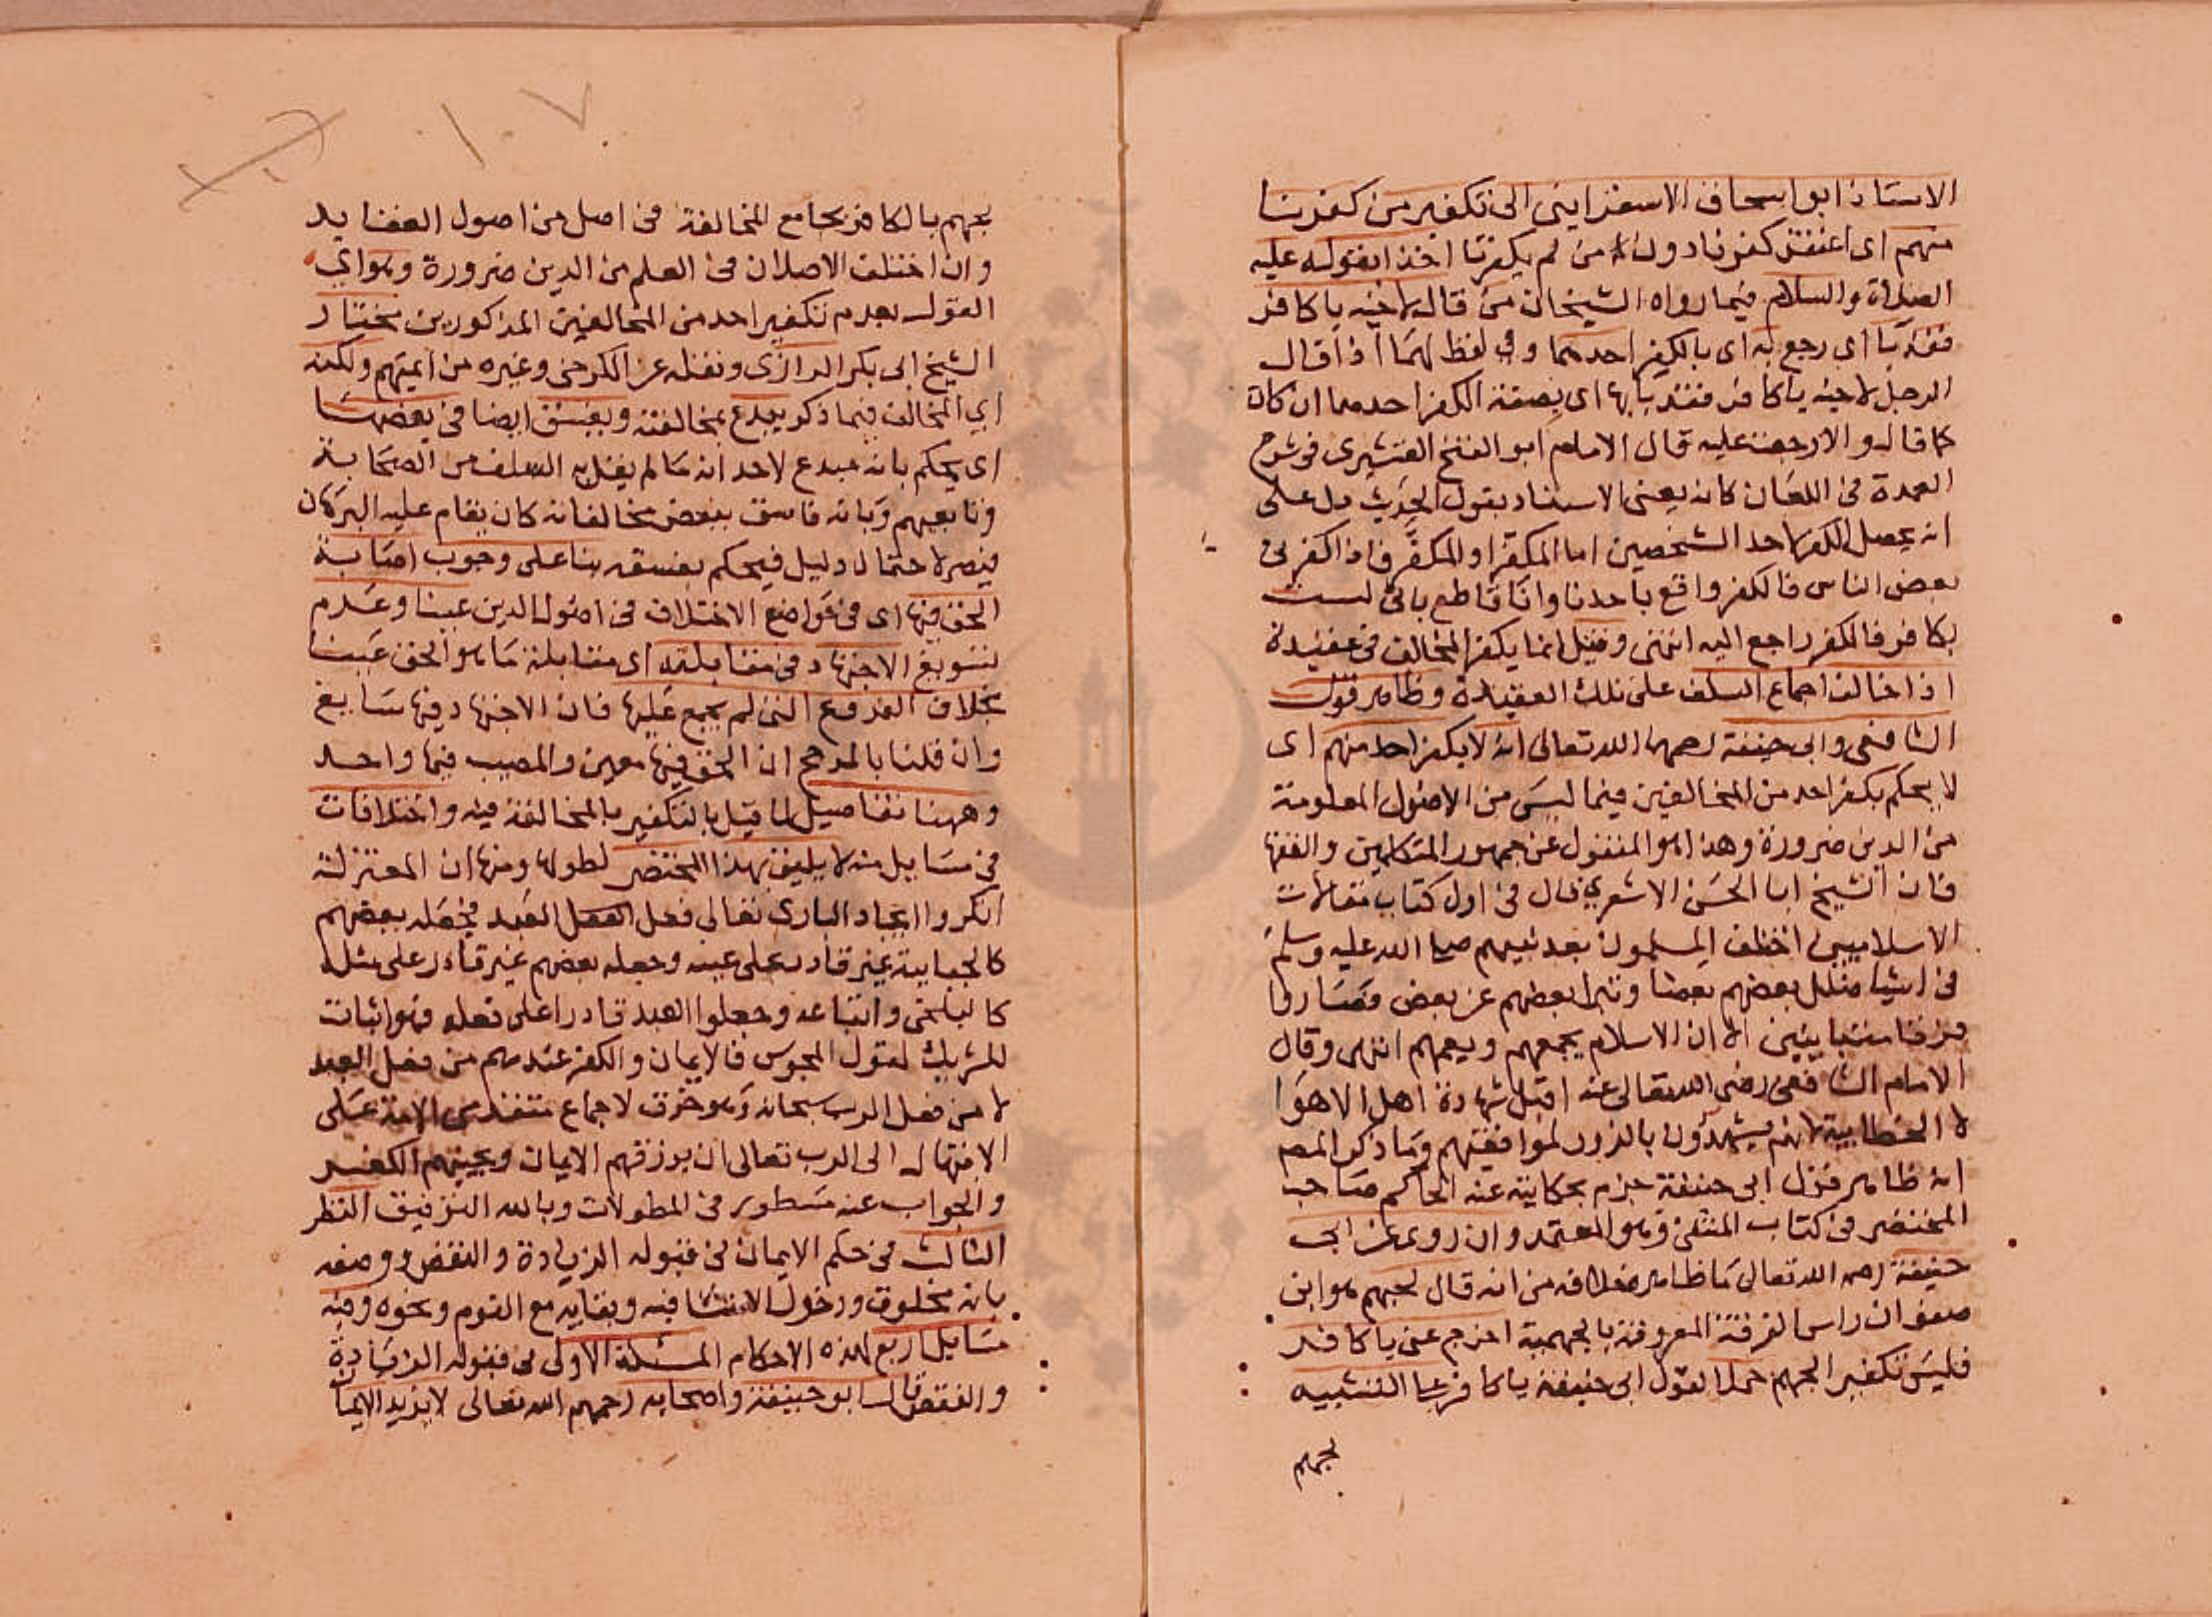 الاستاذ ابو اسحاق الاسفرايني الى تكفير من كفرنا
منهم اى اعتقد كفرنا دون من لم يكفرنا اخذا بقوله عليه
الصلاة والسلام فيما رواه الشيخان من قال لاخيه يا كافر
فقد با اى رجع به اى بالكفر احدهما وفي لفظ لهما اذا قال
الرجل لاخيه يا كافر فقد با بها اى بصفة الكفر احدهما ان كان
كما قال والا رجعت عليه قال الامام ابو الفتح القشيرى في شرح
العمدة في اللعان كانه يعني الاستاد يقول الحديث دل على
انه يحصل الكفر لاحد الشخصين اما المكفِّر او المكفَّر فاذا كفرني
بعض الناس فالكفر واقع باحدنا وانا قاطع باني لست
بكافر فالكفر راجع اليه انتهى وقيل انما يكفر المخالف في عقيدة
اذا خالف اجماع السلف على تلك العقيدة وظاهر قول
الشافعى وابى حنيفة رحمهما الله تعالى انه لا يكفر احد منهم اى
لا يحكم بكفر احد من المخالفين فيما ليس من الاصول المعلومة
من الدين ضرورة وهذا هو المنقول عن جمهور المتكلمين والفقها
فان الشيخ ابا الحسن الاشعري قال في اول كتاب مقالات
الاسلاميين اختلف المسلمون بعد نبيهم صلى الله عليه وسلم
في اشيا ضلل بعضهم بعضا وتبرا بعضهم عن بعض فصاروا
فرقا متباينين الا ان الاسلام يجمعهم ويعمهم انتهى وقال
الامام الشافعى رضى الله تعالى عنه اقبل شهادة اهل الاهوا
لا الخطابية لانهم يشهدون بالزور لموافقيهم وما ذكر المص
انه ظاهر قول ابى حنيفة جزم بحكايته عنه الحاكم صاحب
المختصر في كتاب المنتقى وهو المعتمد وان روى عن ابى
حنيفة رحمه الله تعالى ما ظاهره خلافه من انه قال لجهم هو ابن
صفوان راس الفرقة المعروفة بالجهمية اخرج عني يا كافر
فليس تكفير الجهم حملا لقول ابى حنيفة يا كافر على التشبيه
لجهم
١٠٧
بجهم بالكافر بجامع المخالفة في اصل من اصول العقايد
وان اختلف الاصلان في العلم من الدين ضرورة وهو اي
القول بعدم تكفير احد من المخالفين المذكورين مختار
الشيخ ابى بكر الرازى ونقله عن الكرخى وغيره من ايمتهم ولكنه
اي المخالف فيما ذكر يبدع بمخالفته ويفسق ايضا في بعضها
اى يحكم بانه مبدع لاحداثه ما لم يقل به السلف من الصحابة
وتابعيهم وبانه فاسق ببعض مخالفاته كان يقام عليه البرهان
فيصر لاحتمال دليل فيحكم بفسقه بنا على وجوب اصابة
الحق فيها اى في مواضع الاختلاف في اصول الدين عينا وعدم
تسويغ الاجتهاد في مقابلته اى مقابلة ما هو الحق عينا
بخلاف الفروع التى لم يجمع عليها فان الاجتهاد فيها سايغ
وان قلنا بالمرجح ان الحق فيها معين والمصيب فيها واحد
وههنا تفاصيل لما قيل بالتكفير بالمخالفة فيه واختلافات
في مسايل منه لا يليق بهذا المختصر لطولها ومنها ان المعتزلة
انكروا ايجاد البارى تعالى فعل العبد فجعله بعضهم
كالجبايية غير قادر على عينه وجعله بعضهم غير قادر على مثله
كالبلخى واتباعه وجعلوا العبد قادرا على فعله فهو اثبات
للشريك لقول المجوس فالايمان والكفر عندهم من فعل العبد
لا من فعل الرب سبحانه وهو خرق لاجماع متقدمى الامة على
الابتهال الى الرب تعالى ان يرزقهم الايمان ويجنبهم الكفر
والجواب عنه مسطور في المطولات وبالله التوفيق النظر
الثالث في حكم الايمان في قبوله الزيادة والنقص ووصفه
بانه مخلوق ودخول الاستثنا فيه وبقايه مع النوم ونحوه وفيه
مسايل اربع لهذه الاحكام المسئلة الاولى في قبوله الزيادة
والنقص قال ابو حنيفة واصحابه رحمهم الله تعالى لا يزيد الايمان